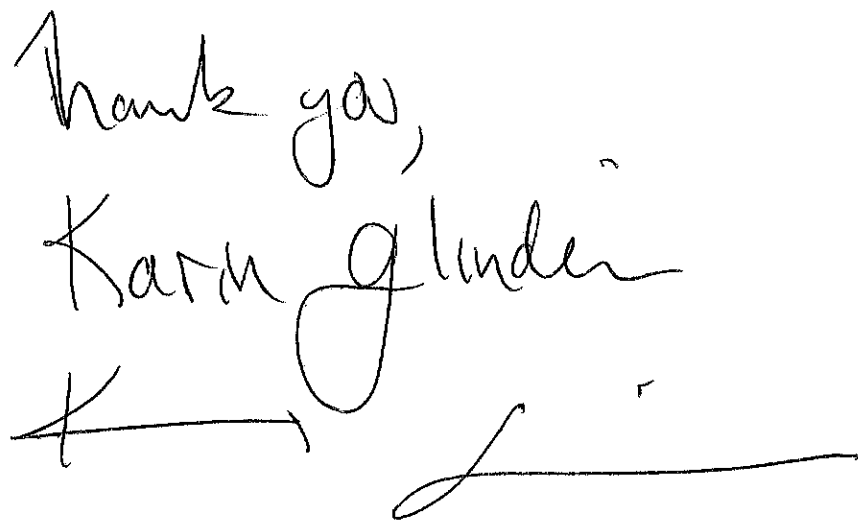 Thank you,
Karin glinden